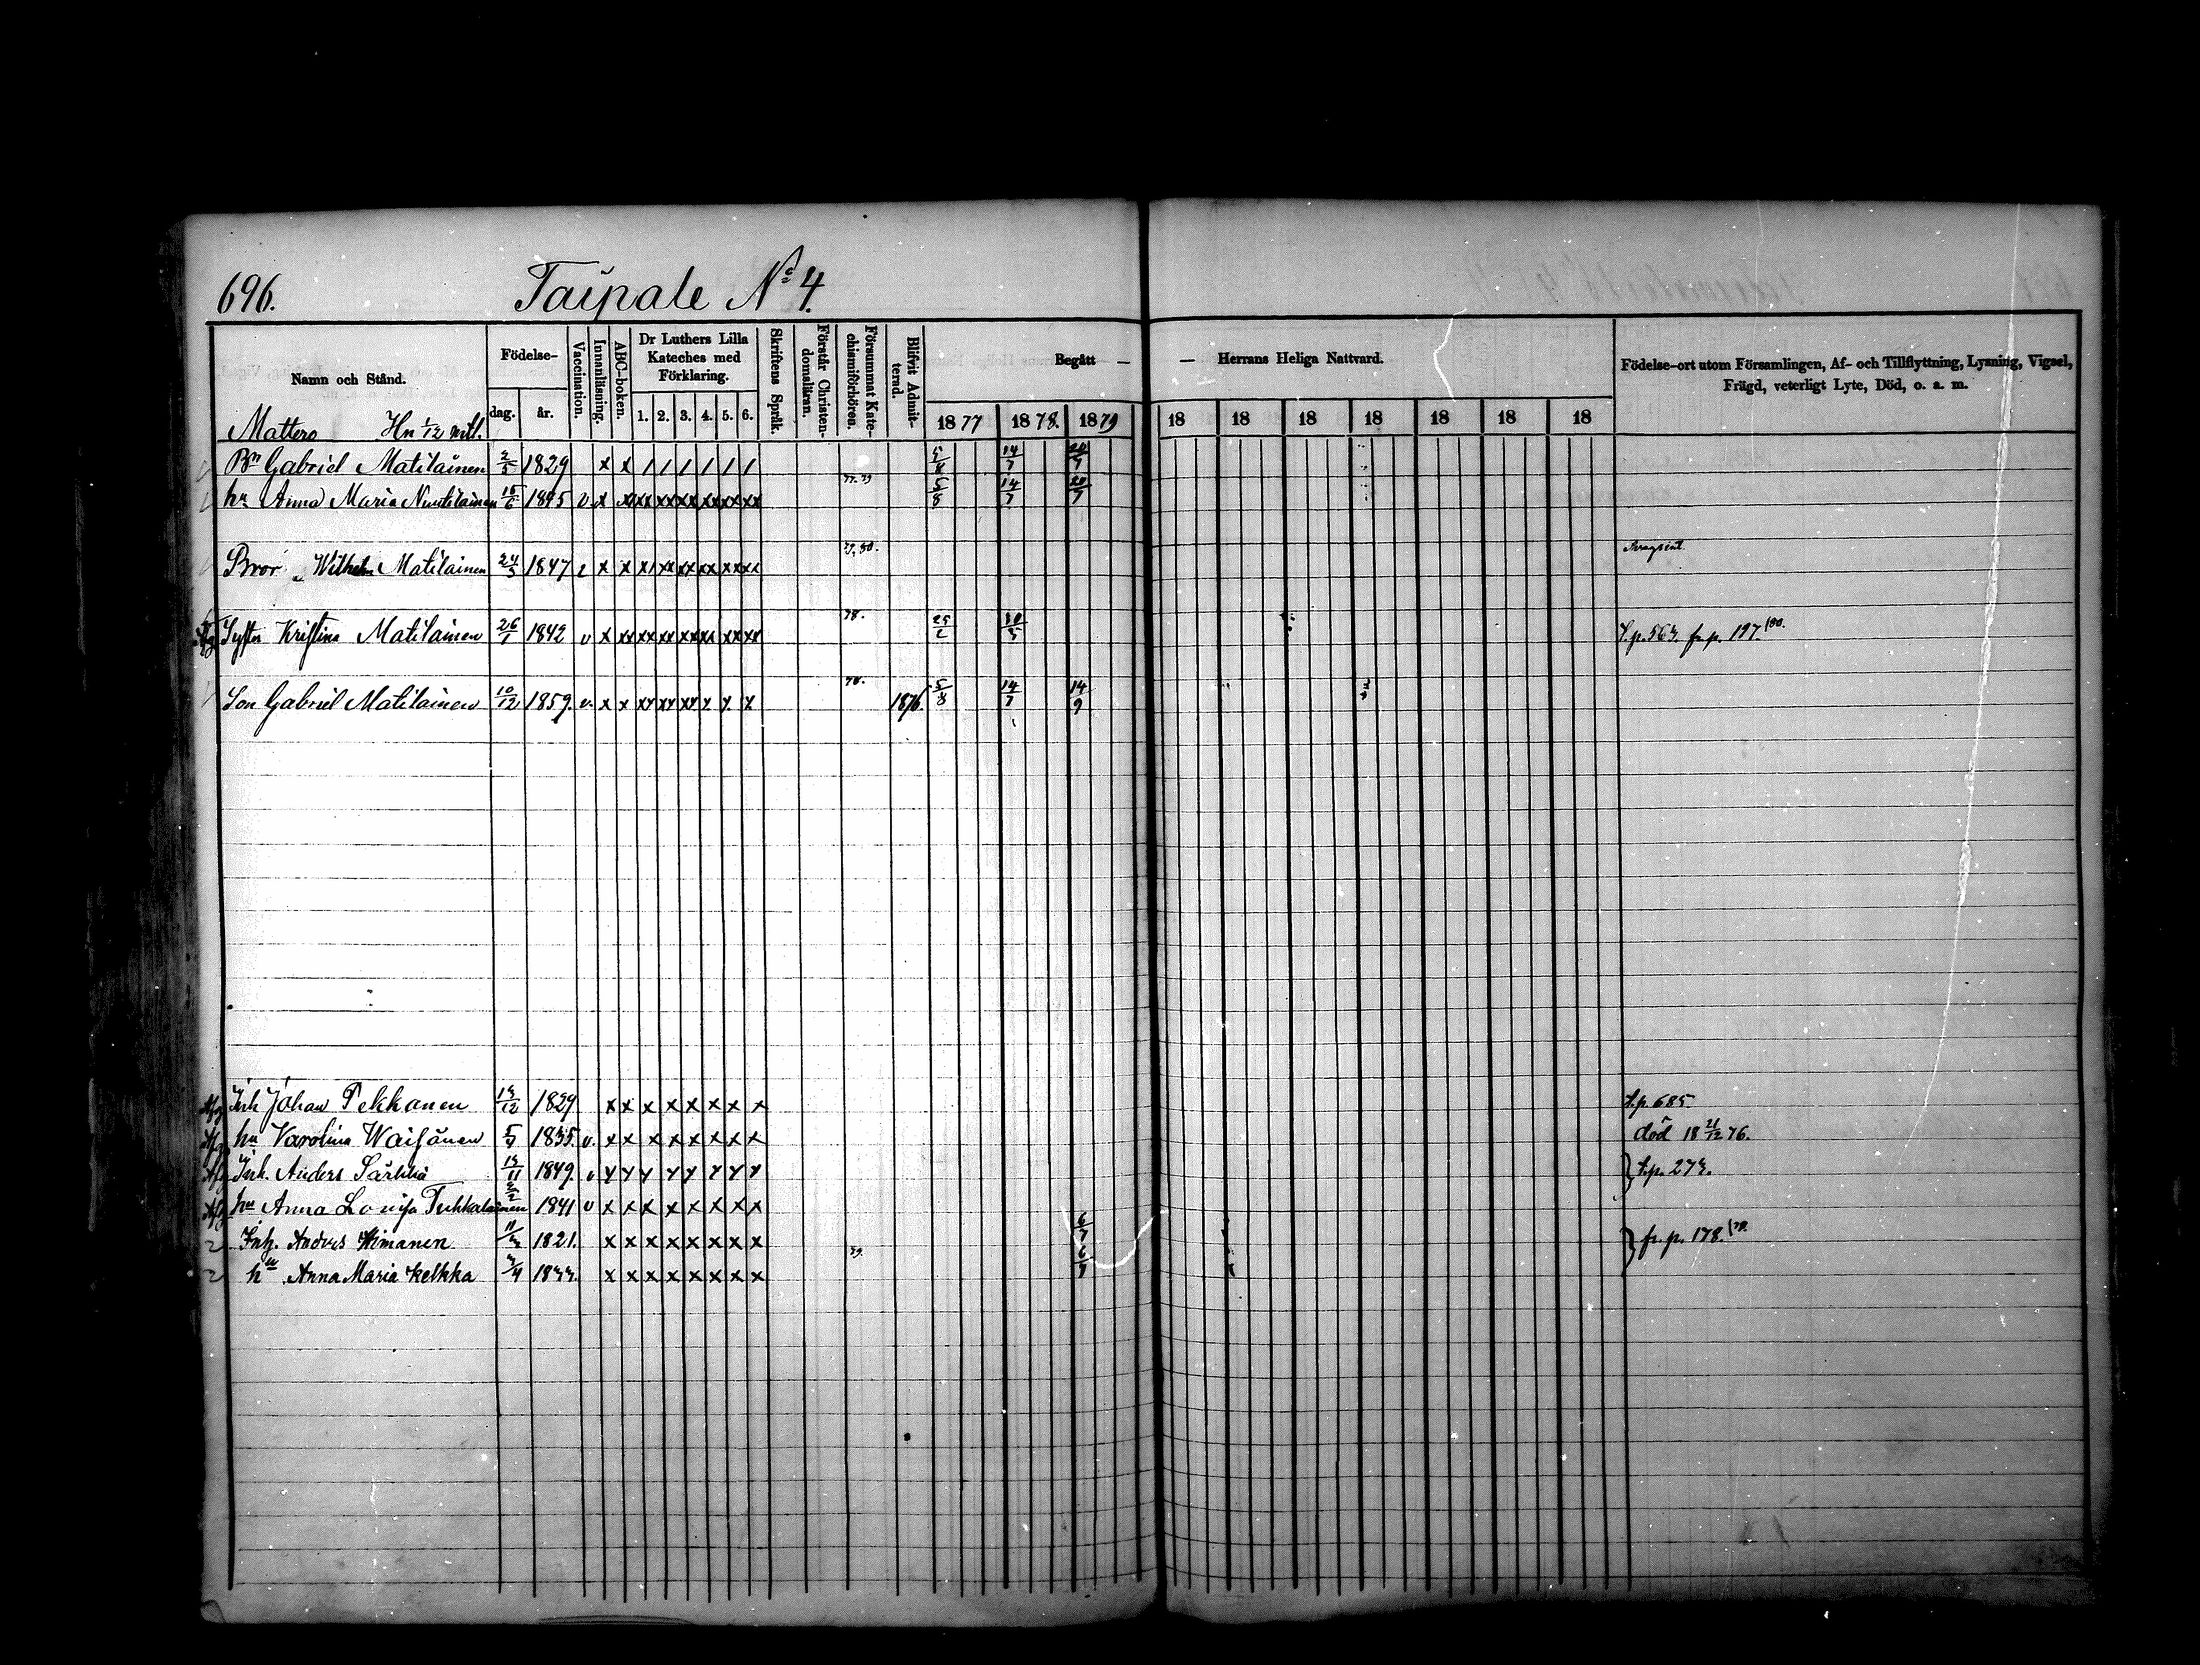 696. Taipale No 4.
Namn och Stånd. Födelse- dag. år. Vaccination. Innanläsning. ABC-boken. Dr Luthers Lilla Kateches med Förklaring. 1. 2. 3. 4. 5. 6. Skriftens Språk. Förstår Christendomsläran. Försummat Katechismiförhören. Blifvit Admitterad. Begått — — Herrans Heliga Nattvard. Födelse-ort utom Församlingen, Af- och Tillflyttning, Lysning, Vigsel, Frägd, veterligt Lyte, Död, o. a. m.
1877 1878. 1879 18 18 18 18 18 18 18
Mattero Hn 1/12 mtl.
Bn Gabriel Matilainen 2/5 1829 x x / / / / / / 5/8 14/7 20/7
hu Anna Maria Nuutilainen 15/6 1845 v x x xx xx xx xx xx xx 77. 79 5/8 14/7 20/7
Bror Wilhelm Matilainen 24/5 1847 x x xx xx xx xx xx 79, 80.
Syster Kristina Matilainen 26/1 1842 v x xx xx xx xx xx xx 78. 25/2 30/5 t.p. 563. fr. p. 197. /80.
Son Gabriel Matilainen 10/12 1859. v. x x xx xx xx x x x 78. 1876. 5/8 14/7 14/9
Afg Inh Johan Pekkanen 13/12 1829 x x x x x x x x t.p. 685.
Afg hu Karolina Waisänen 5/7 1835. v. x x x x x x x x död 18 21/12 76.
Afg Inh. Anders Särkkä 13/11 1849. v x x x x x x x x } t.p. 273.
Afg hu Anna Lovisa Tukkalainen 2/2 1841 v x x x x x x x x
Inh. Anders Himanen 11/3 1821. x x x x x x x x 6/7 } fr. p. 178. /79.
hu Anna Maria Kelkka 3/4 1833. x x x x x x x x 79. 6/7